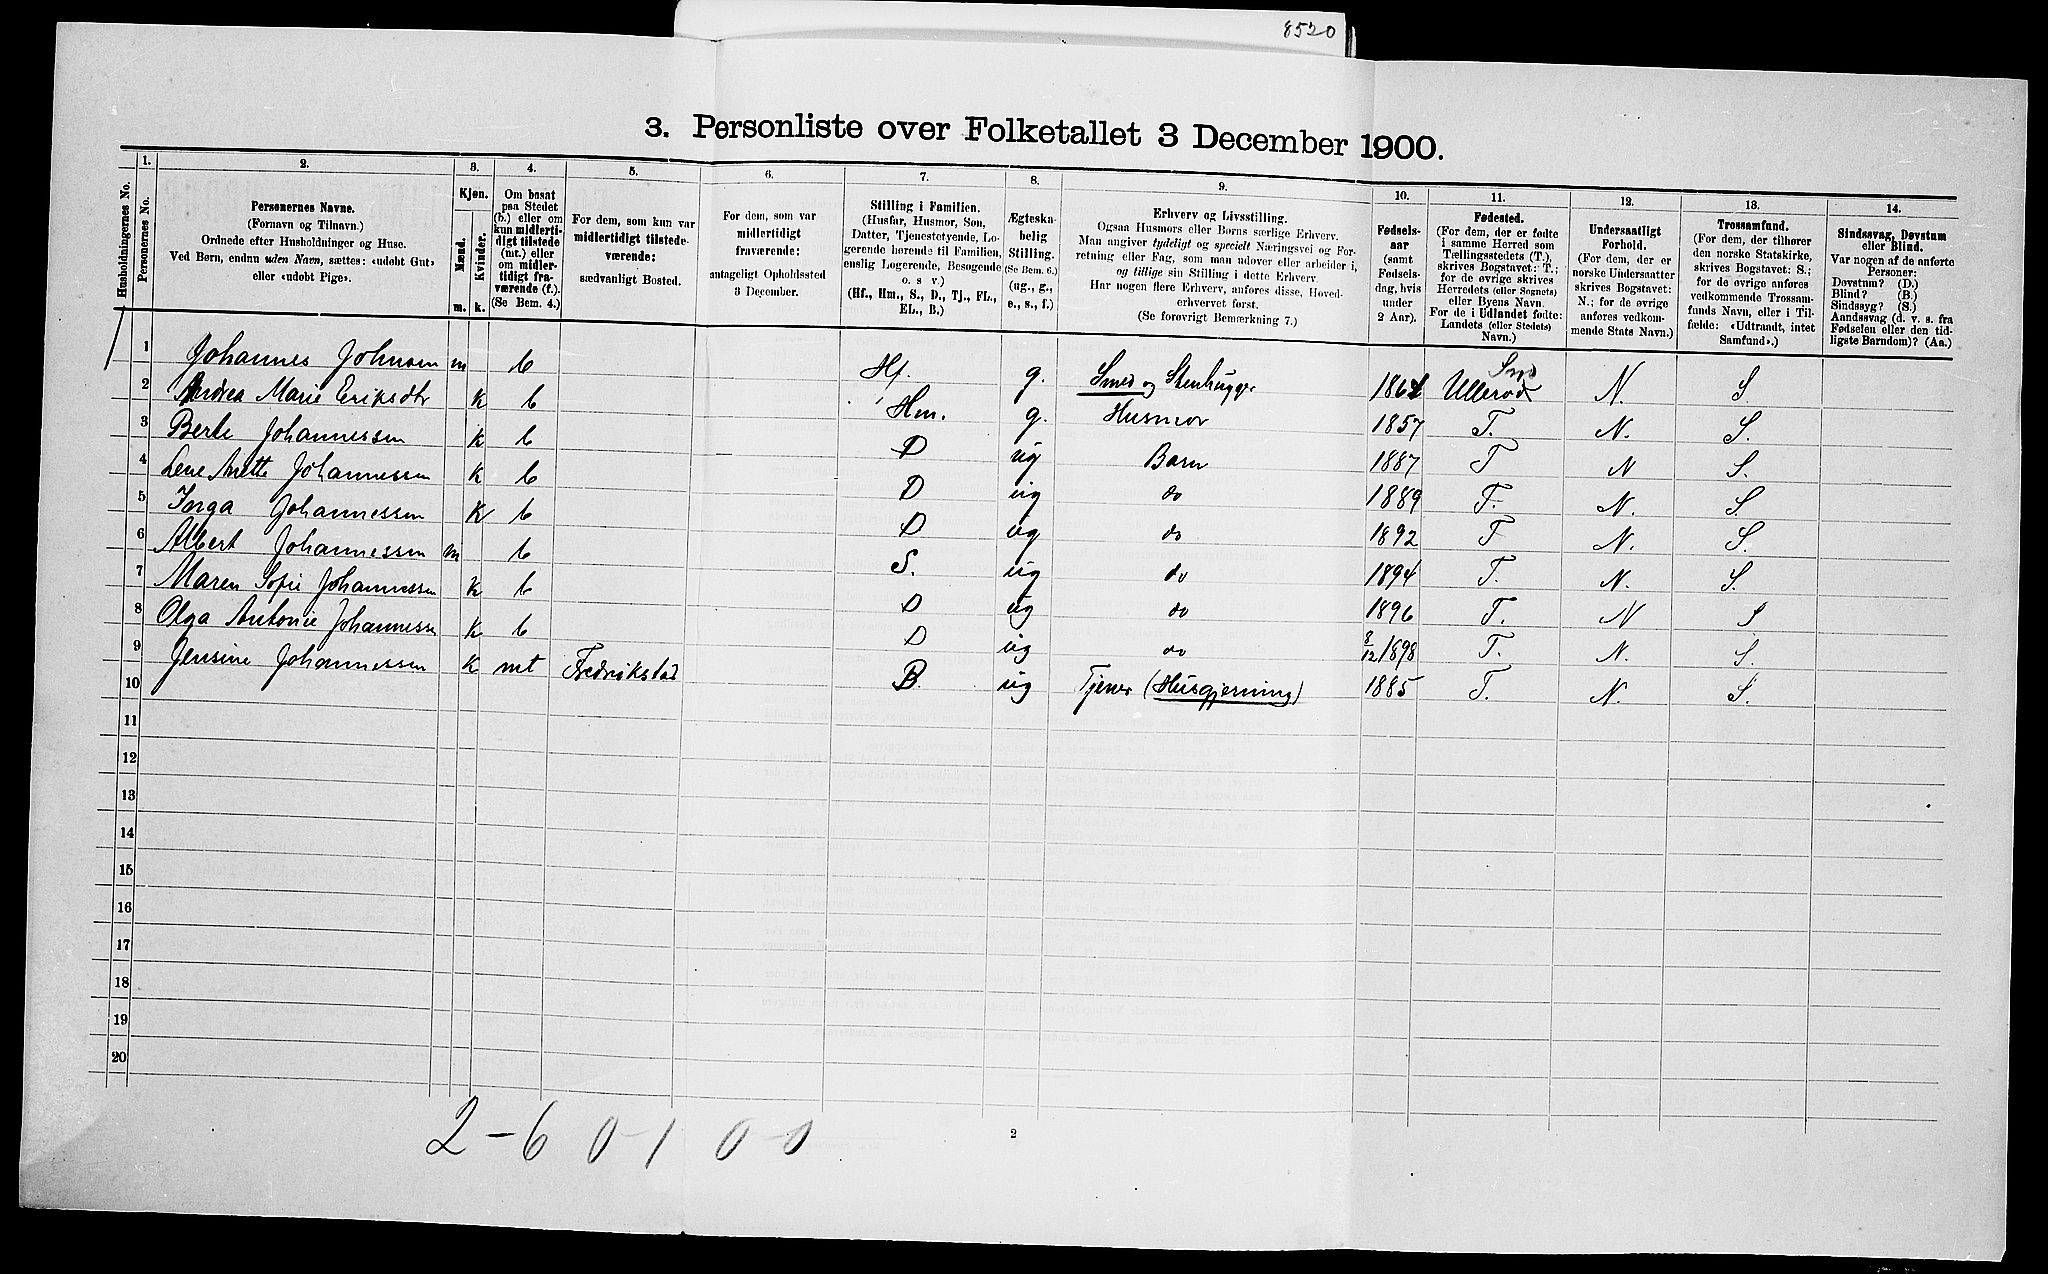 8520
3. Personliste over Folketallet 3 December 1900.
1. 2. 3. 4. 5. 6. 7. 8. 9. 10. 11. 12. 13. 14.
Husholdningernes No.
Personernes No.
Personernes Navne.
(Fornavn og Tilnavn.)
Ordnede efter Husholdninger og Huse.
Ved Børn, endnu uden Navn, sættes: «udøbt Gut»
eller «udøbt Pige».
Kjøn.
Mænd.
Kvinder.
m. k.
Om bosat
paa Stedet
(b.) eller om
kun midlerti-
digt tilstede
(mt.) eller
om midler-
tidigt fra-
værende (f.)
(Se Bem. 4.)
For dem, som kun var
midlertidigt tilstede-
værende:
sædvanligt Bosted.
For dem, som var
midlertidigt
fraværende:
antageligt Opholdssted
3 December.
Stilling i Familien.
(Husfar, Husmor, Søn,
Datter, Tjenestetyende, Lo-
gerende hørende til Familien,
enslig Logerende, Besøgende
o. s. v.)
(Hf., Hm., S., D., Tj., FL.,
EL., B.)
Ægteska-
belig
Stilling.
(Se Bem. 6.)
(ug., g.,
e., s., f.)
Erhverv og Livsstilling.
Ogsaa Husmors eller Børns særlige Erhverv.
Man angiver tydeligt og specielt Næringsvei og For-
retning eller Fag, som man udøver eller arbeider i,
og tillige sin Stilling i dette Erhverv.
Har nogen flere Erhverv, anføres disse, Hoved-
erhvervet først.
(Se forøvrigt Bemærkning 7.)
Fødsels-
aar
(samt
Fødsels-
dag, hvis
under
2 Aar).
Fødested.
(For dem, der er fødte
i samme Herred som
Tællingsstedets (T.),
skrives Bogstavet: T.;
for de øvrige skrives
Herredets (eller Sognets)
eller Byens Navn.
For de i Udlandet fødte:
Landets (eller Stedets)
Navn.)
Undersaatligt
Forhold.
(For dem, der er
norske Undersaatter
skrives Bogstavet:
N.; for de øvrige
anføres vedkom-
mende Stats Navn.)
Trossamfund.
(For dem, der tilhører
den norske Statskirke,
skrives Bogstavet: S.;
for de øvrige anføres
vedkommende Trossam-
funds Navn, eller i Til-
fælde: «Udtraadt, intet
Samfund».)
Sindssvag, Døvstum
eller Blind.
Var nogen af de anførte
Personer:
Døvstum? (D.)
Blind? (B.)
Sindssyg? (S.)
Aandssvag (d. v. s. fra
Fødselen eller den tid-
ligste Barndom)? (Aa.)
1 Johannes Johnsen m b Hf. g. Smed og Stenhugger 1861 Ullerød N. S.
2 Andrea Marie Eriksdtr k b Hm. g. Husmor 1857 T. N. S.
3 Berte Johannessen k b D ug Barn 1887 T N S.
4 Lene Anette Johannessen k b D ug do 1889 T. N. S.
5 Inga Johannessen k b D ug do 1892 T N. S.
6 Albert Johannessen m b S. ug do 1894 T. N. S.
7 Maren Sofie Johannessen k b D ug do 1896 T. N S
8 Olga Antonie Johannessen k b D ug do 8/12 1898 T. N. S.
9 Jensine Johannessen k mt Fredrikstad B. ug Tjener (Husgjerning) 1885 T. N. S.
10
11
12
13
14
15
16
17
18
19
20
2-6 0-1 0-0
2